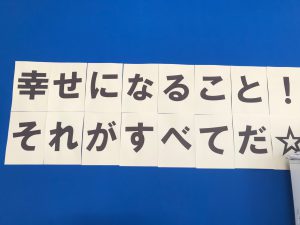 幸せになること！
それがすべてだ☆